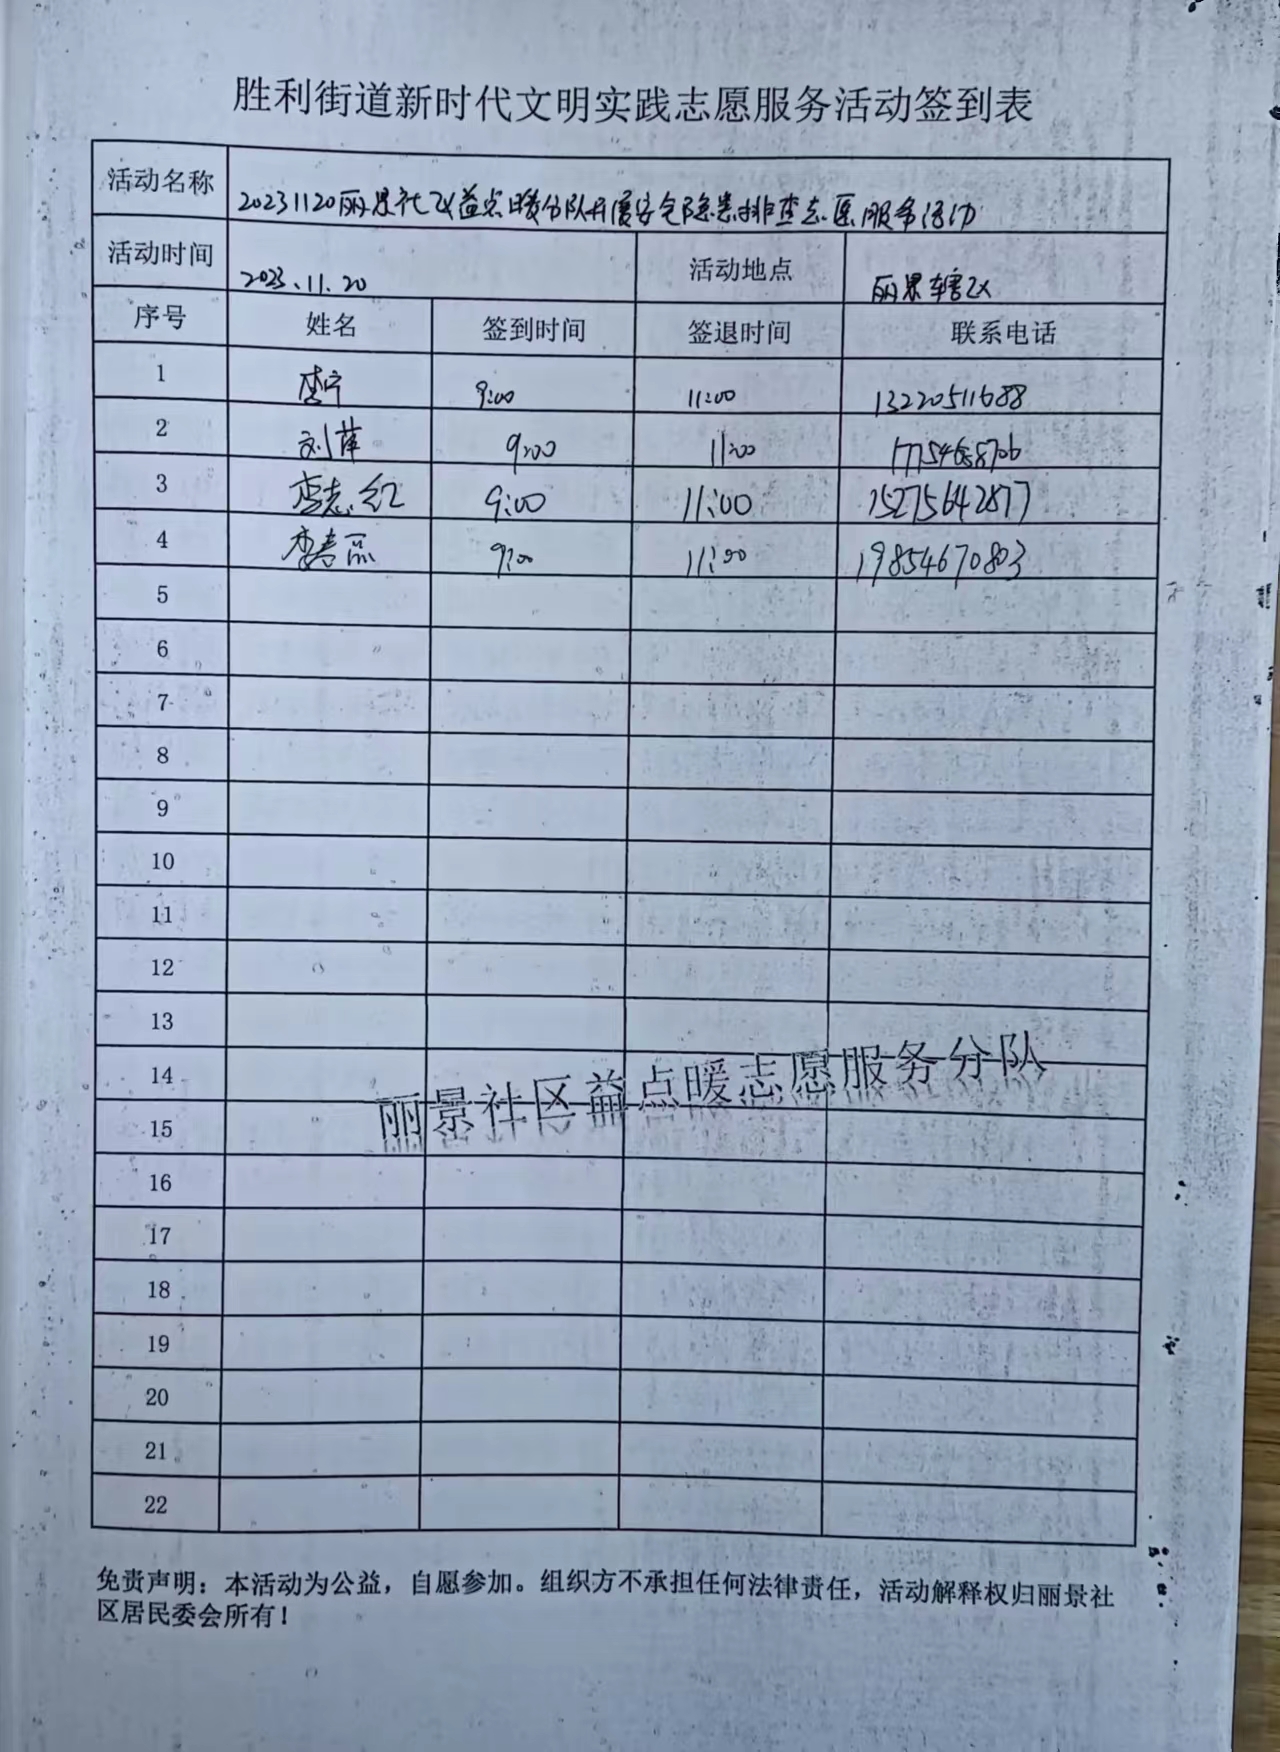 胜利街道新时代文明实践志愿服务活动签到表
活动名称 20231120丽景社区益点暖分队开展安全隐患排查志愿服务活动
活动时间 2023.11.20 活动地点 丽景辖区
序号 姓名 签到时间 签退时间 联系电话
1 李宁 9:00 11:00 13220511688
2 刘萍 9:00 11:00
3 李志红 9:00 11:00 15275642877
4 李 9:00 11:00 19854670803
5
6
7
8
9
10
11
12
13
14
丽景社区益点暖志愿服务分队
15
16
17
18
19
20
21
22
免责声明：本活动为公益，自愿参加。组织方不承担任何法律责任，活动解释权归丽景社
区居民委会所有！